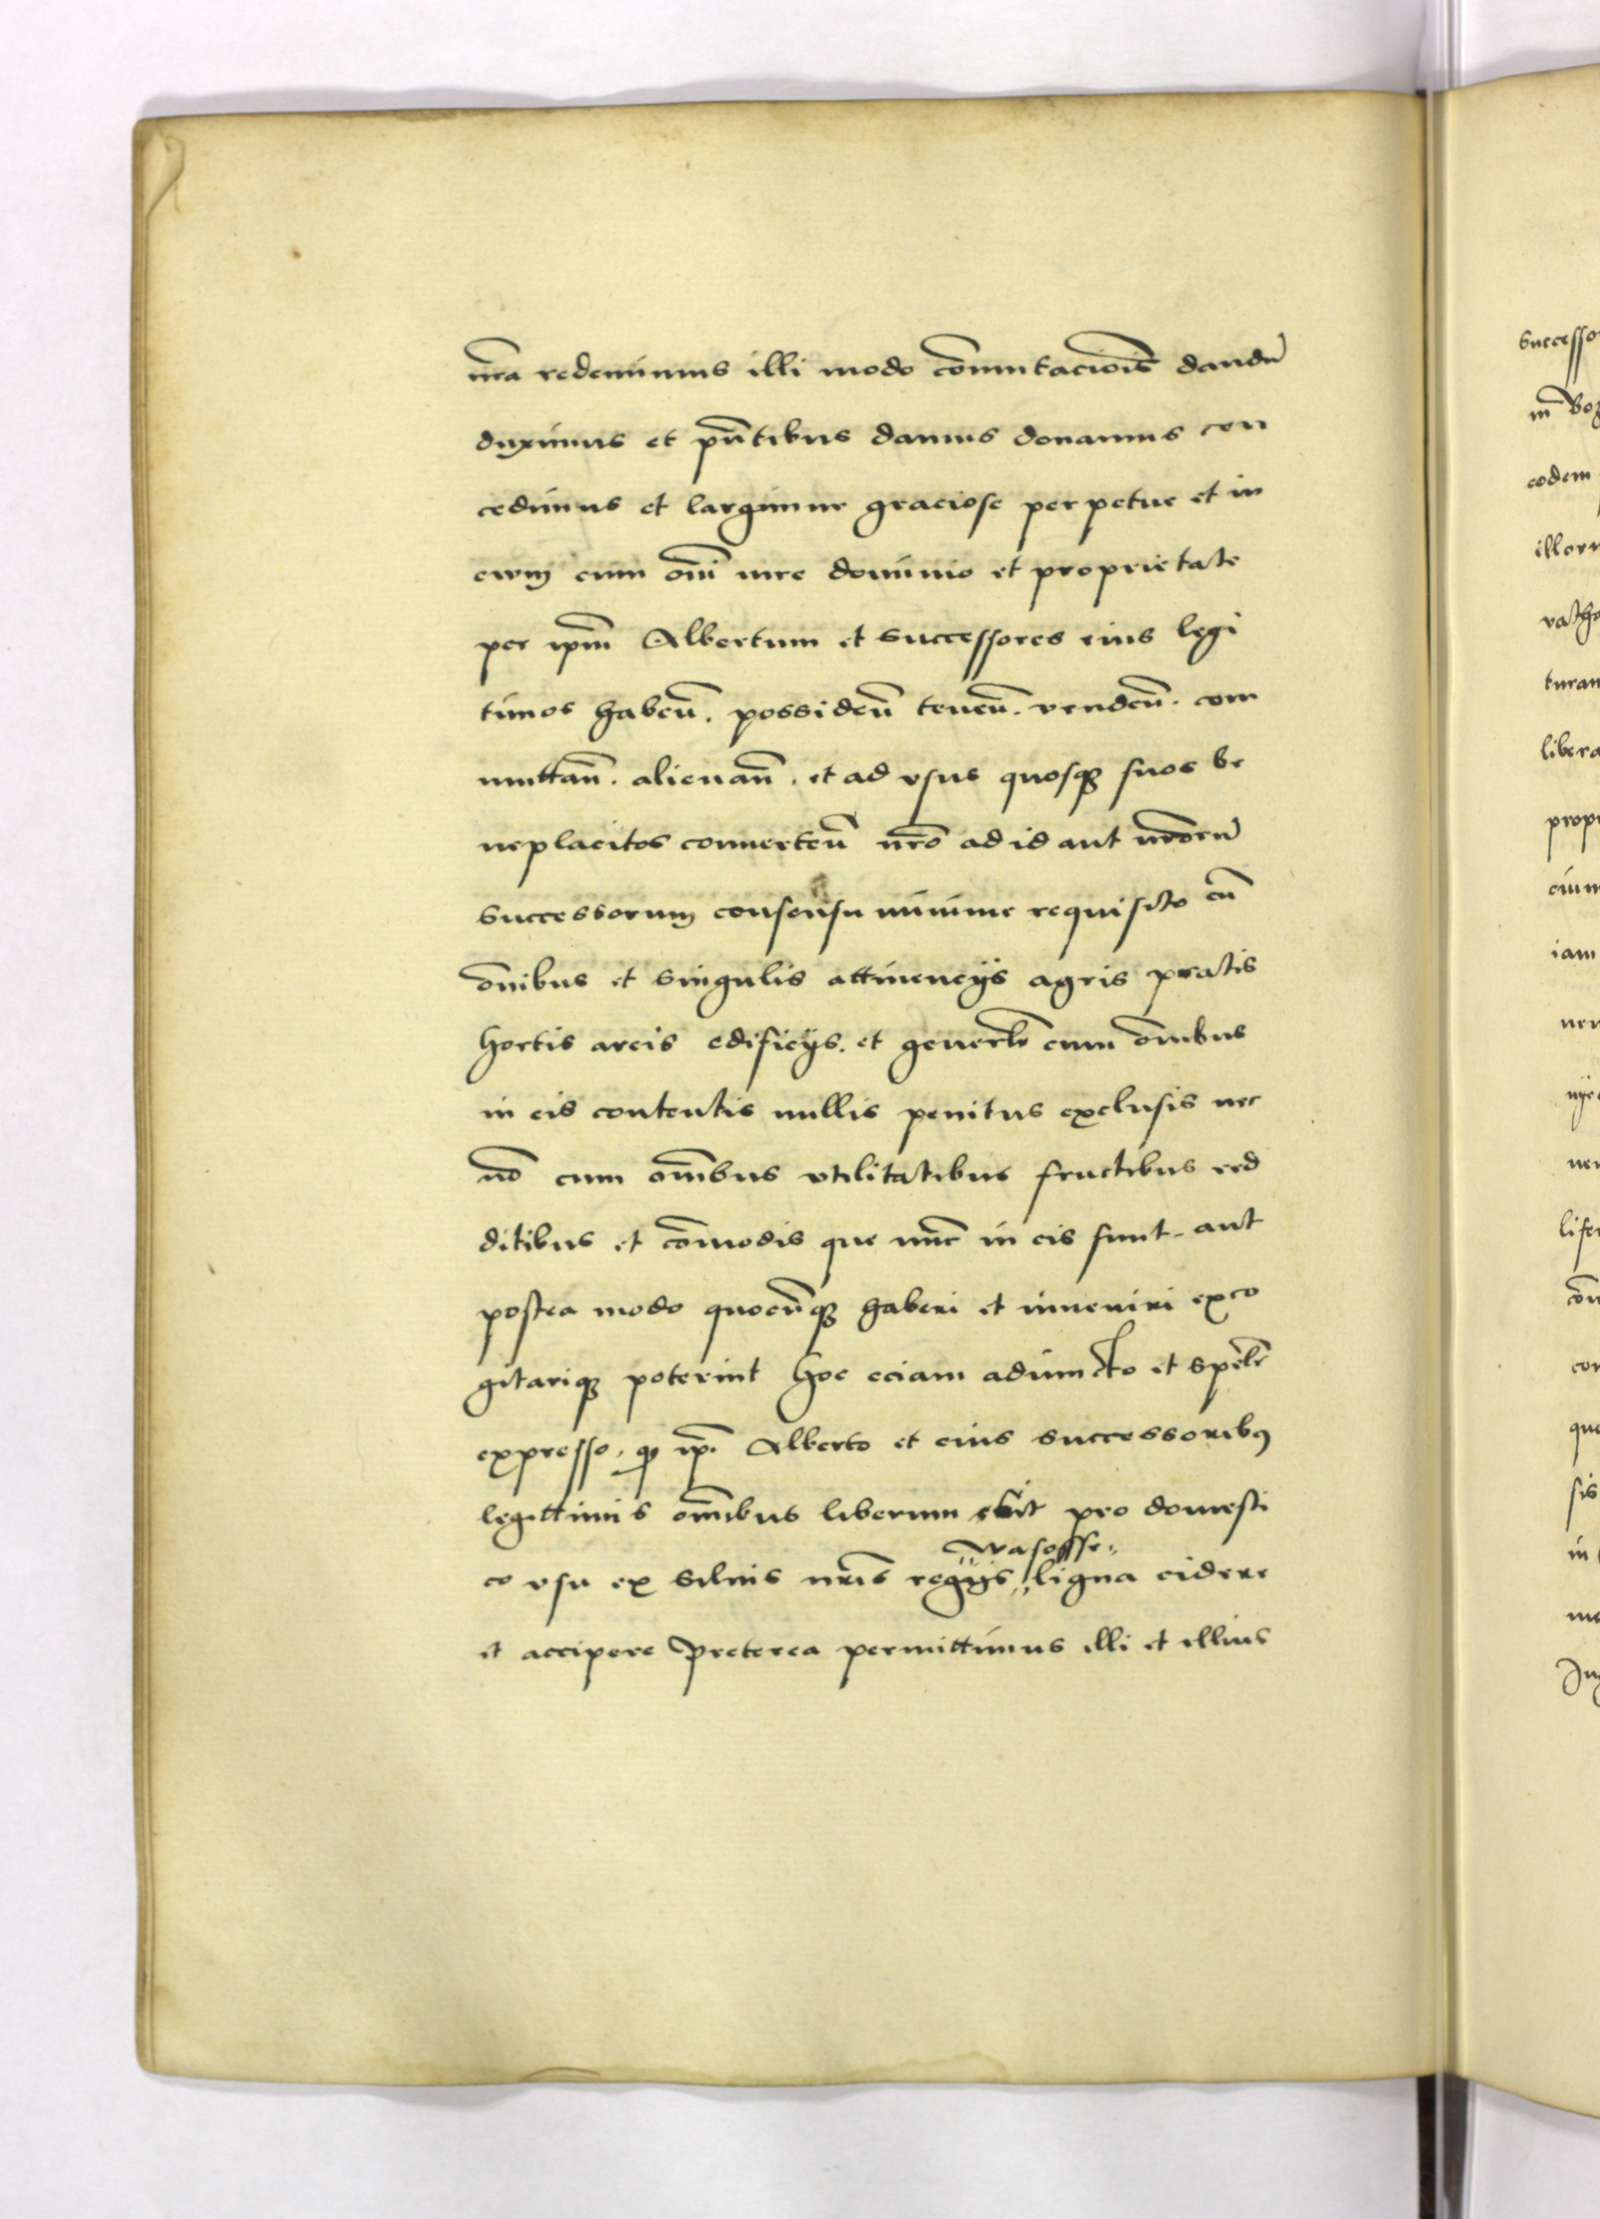 nr̃a redemimus illi modo com̃utacioĩs dandũ
duximus et pñtibus damus donamus con
cedimus et largimur graciose perpetue et in
ewm cum om̃i iure dominio et proprietate
per ipm̃ Albertum et successores eius legi
timos habeñ. possideñ teneñ. vendeñ. com
muttañ. alienañ. et ad vsus quosqꝫ suos be
neplacitos conuerteñ nr̃o ad id aut nr̃orũ
successorum consensu minime requisito cũ
õnibus et singulis attinencijs agris pratis
hortis areis edificijs. et generlr̃ cum õnibus
in eis contentis nullis penitus exclusis nec
nõ cum om̃ibus vtilitatibus fructibus red
ditibus et com̃odis que nũc in eis sunt. aut
postea modo quocũqꝫ haberi et inueniri exco
gitariqꝫ poterint hoc eciam adiuncto et spẽlr̃
expresso. qꝫ ip̃. Alberto et eius successoribꝰ
legittimis om̃ibus liberum erit pro domesti
wasosse
co vsu ex siluis nr̃is regijs ligna cidere
et accipere Preterea permittimus illi et illius
successo
in Boz
eodem
illoru
turam
libera
prop
cium
iam
nen
con
que
sis
in